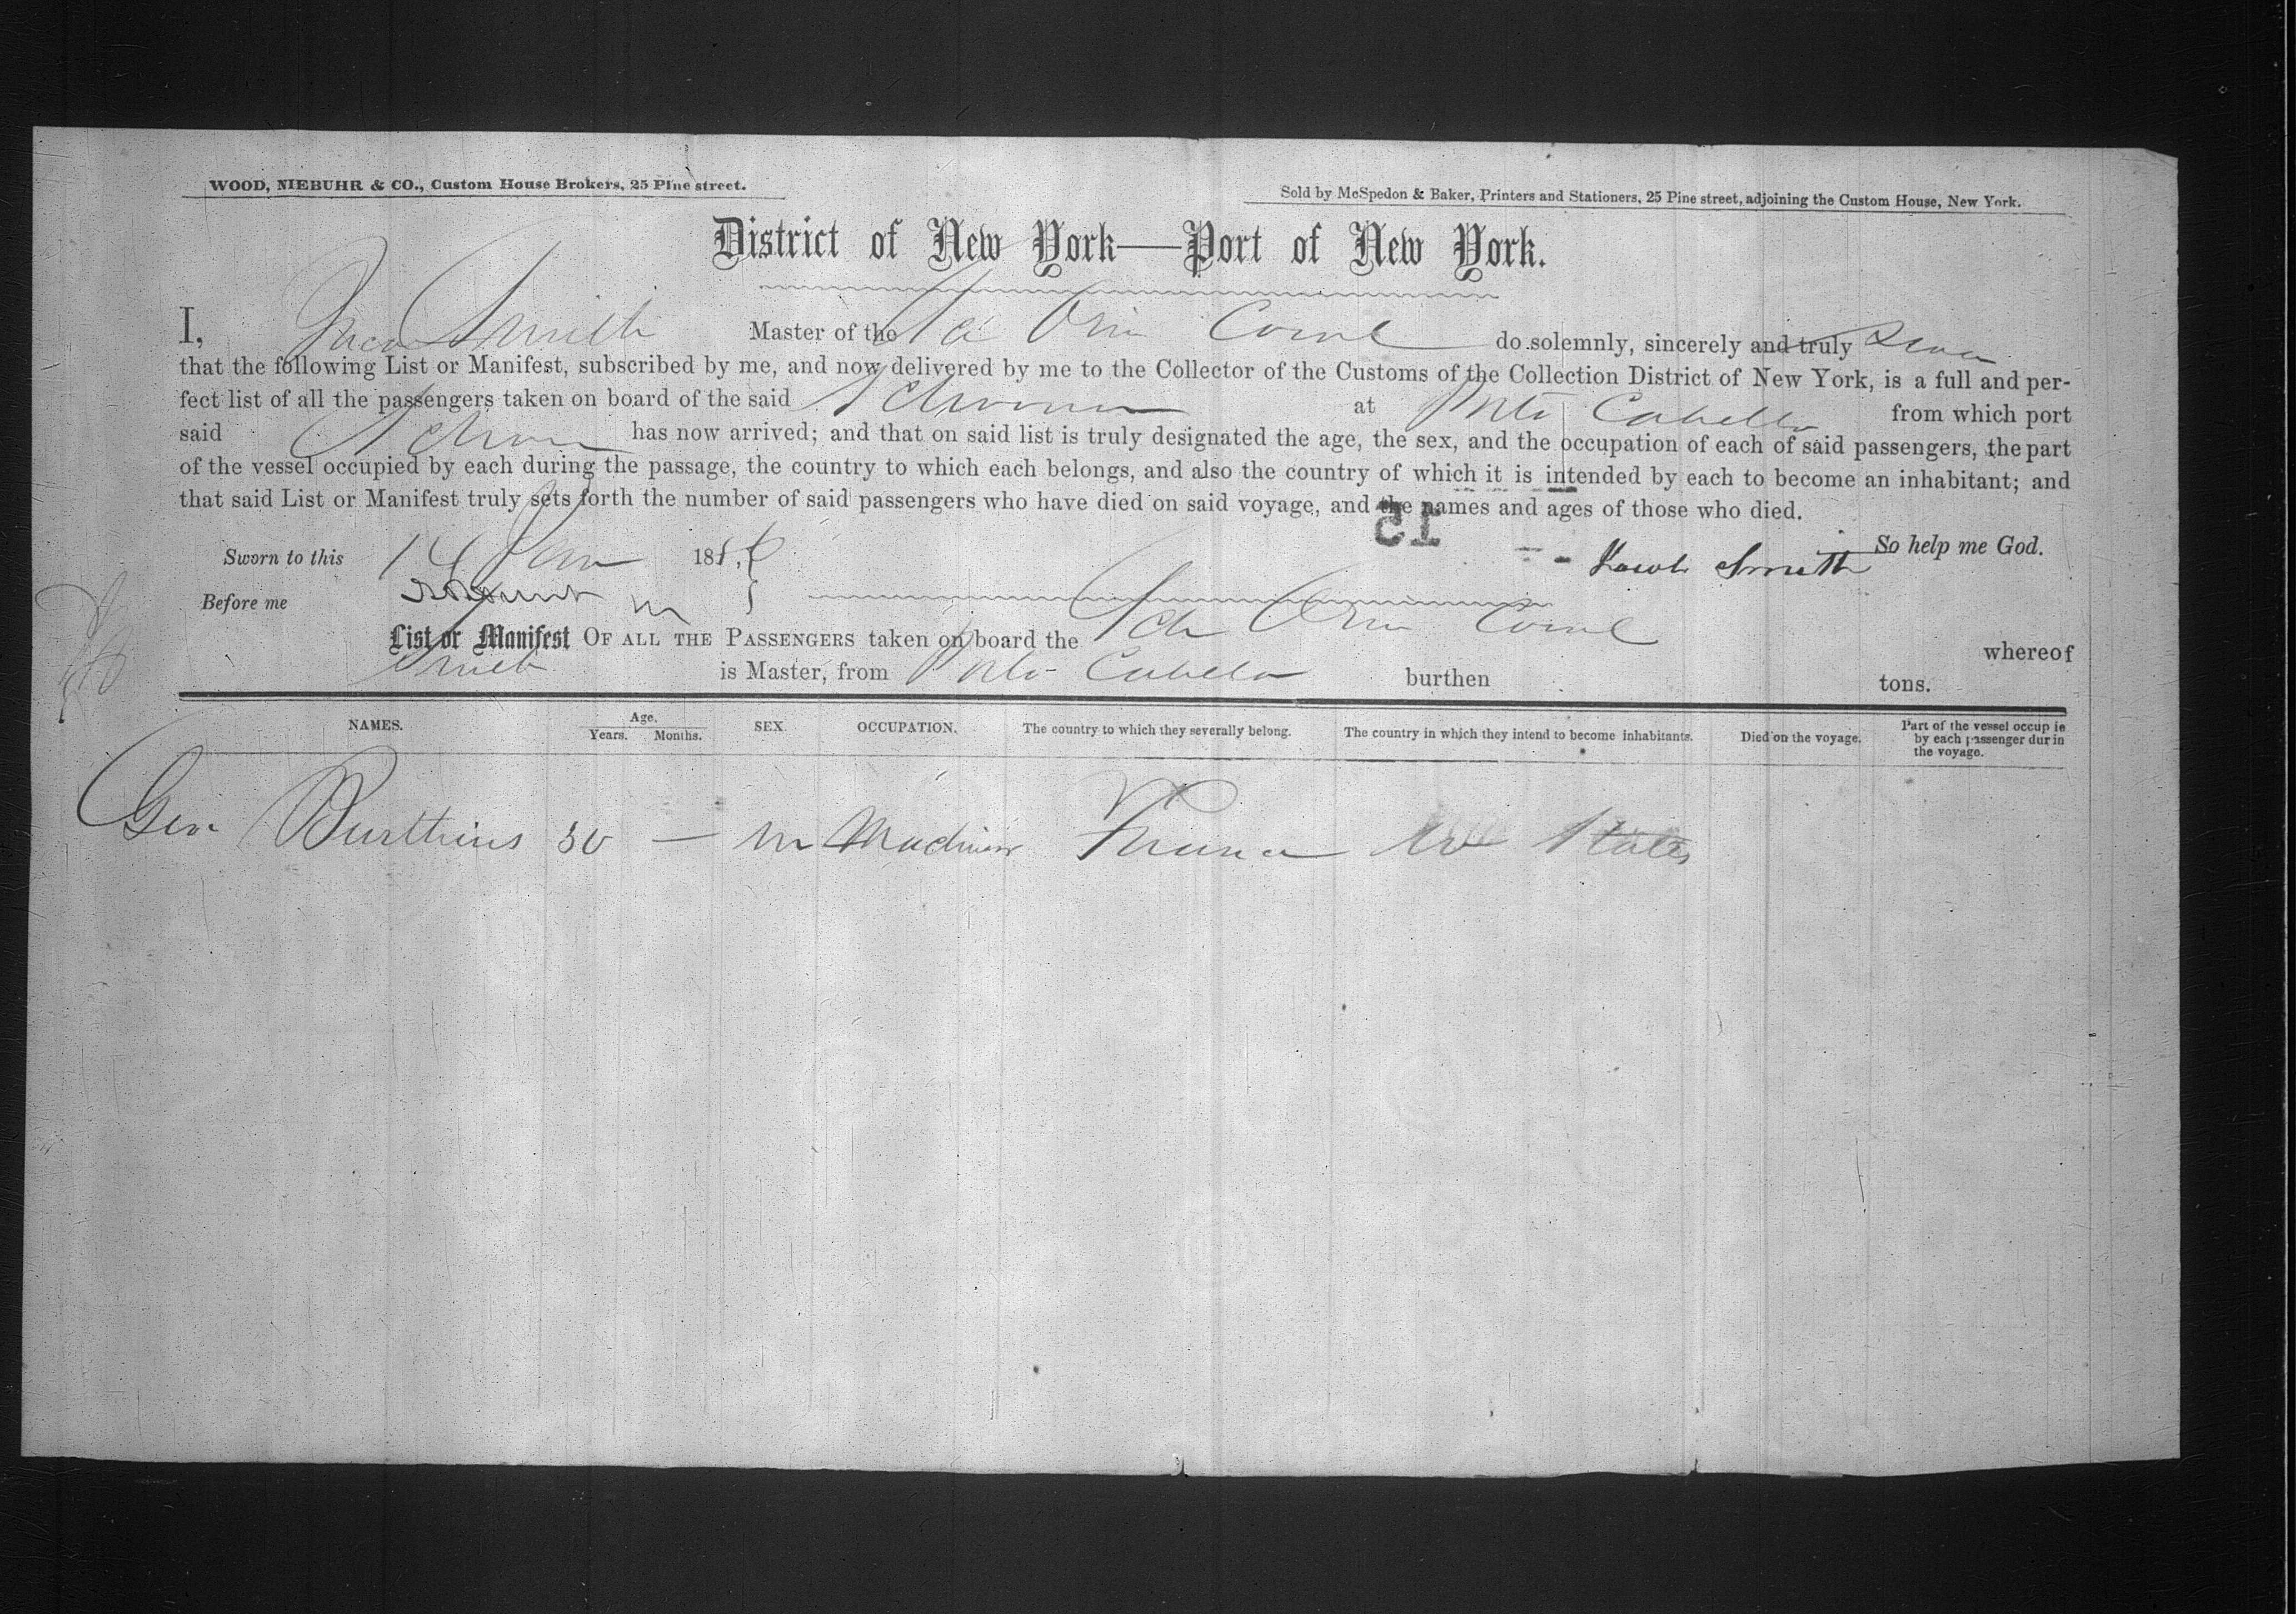 WOOD, NIEBUHR & CO., Custom House Brokers, 25 Pine street.
Sold by McSpedon & Baker, Printers and Stationers, 25 Pine street, adjoining the Custom House, New York.
District of New York—Port of New York.
I, Smith Master of the do solemnly, sincerely and truly Swear
that the following List or Manifest, subscribed by me, and now delivered by me to the Collector of the Customs of the Collection District of New York, is a full and per-
fect list of all the passengers taken on board of the said Schooner at Porto Cabello from which port
said Schooner has now arrived; and that on said list is truly designated the age, the sex, and the occupation of each of said passengers, the part
of the vessel occupied by each during the passage, the country to which each belongs, and also the country of which it is intended by each to become an inhabitant; and
that said List or Manifest truly sets forth the number of said passengers who have died on said voyage, and the names and ages of those who died.
So help me God.
Sworn to this 14 Jan 18 Jacob Smith
Before me
List or Manifest OF ALL THE PASSENGERS taken on board the Sch whereof
Smith is Master, from Porto Cabello burthen tons.
NAMES. Age. Years. Months. SEX OCCUPATION. The country to which they severally belong. The country in which they intend to become inhabitants. Died on the voyage. Part of the vessel occup ie by each passenger dur in the voyage.
Geo Burthius 30 — m France States